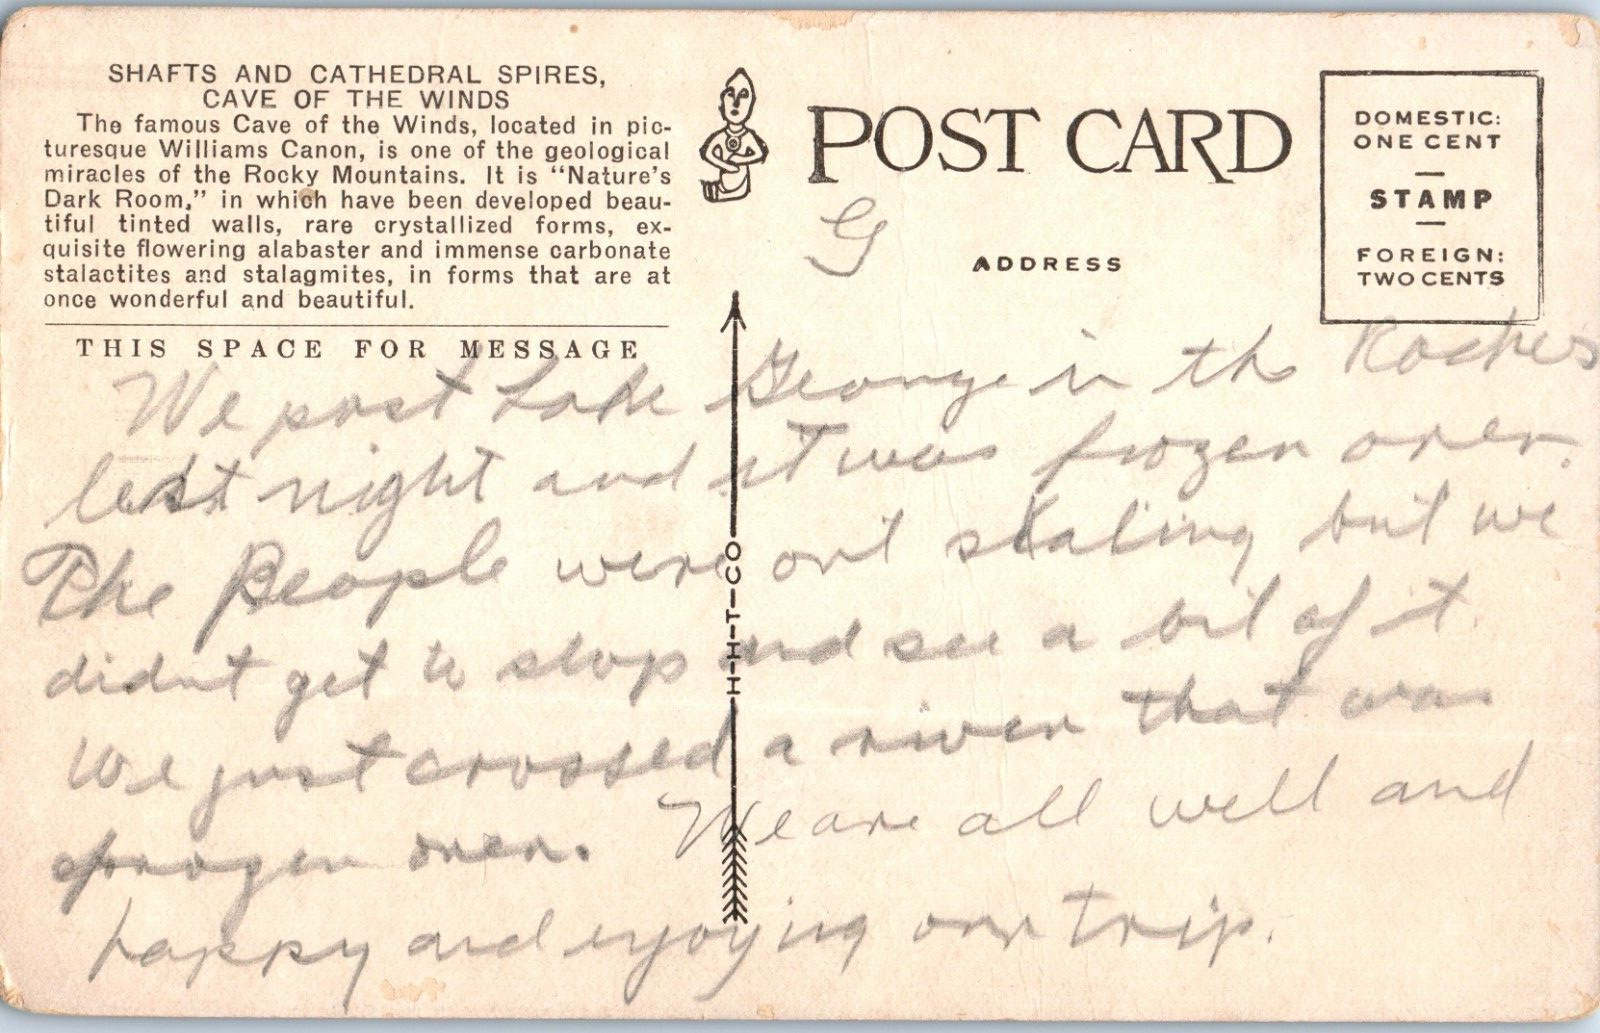 SHAFTS AND CATHEDRAL SPIRES,
CAVE OF THE WINDS
The famous Cave of the Winds, located in pic-
turesque Williams Canon, is one of the geological
miracles of the Rocky Mountains. It is "Nature's
Dark Room," in which have been developed beau-
tiful tinted walls, rare crystallized forms, ex-
quisite flowering alabaster and immense carbonate
stalactites and stalagmites, in forms that are at
once wonderful and beautiful.
THIS SPACE FOR MESSAGE
POST CARD
G
ADDRESS
DOMESTIC:
ONE CENT
STAMP
FOREIGN:
TWO CENTS
H-H-T-CO
We past Lake George in the Rockies
last night and it was frozen over.
The People were out skating but we
didnt get to stop and see a bit of it.
We just crossed a river that was
frozen over. We are all well and
happy and enjoying our trip.